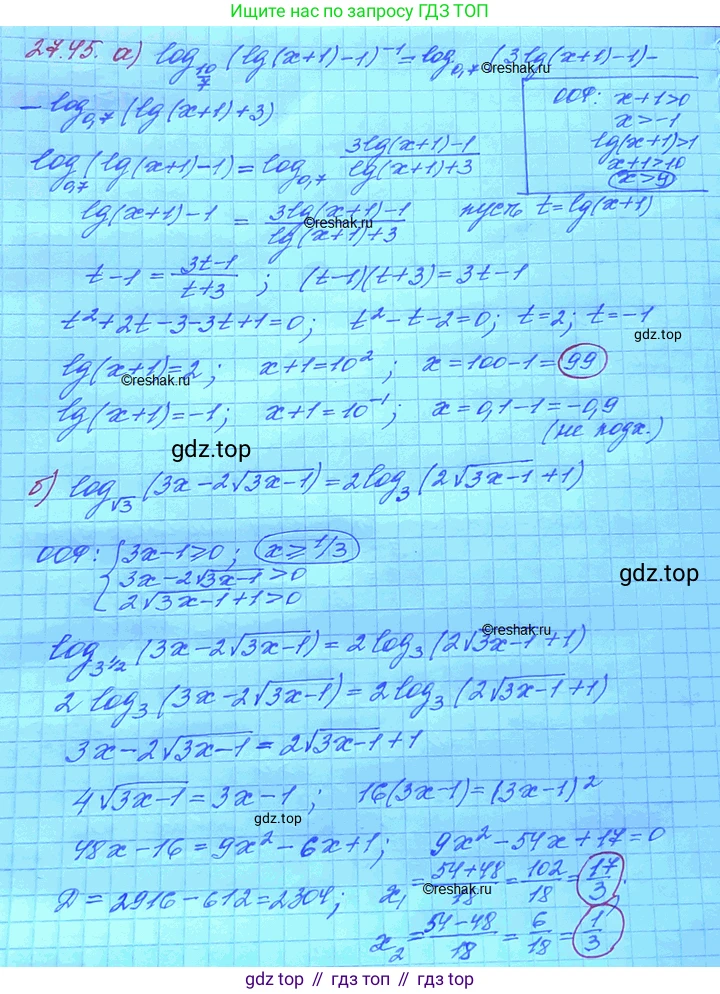 Ищите нас по запросу ГДЗ ТОП
27.45. а) log_{10/7} (lg(x+1)-1)^{-1} = log_{0,7} (3lg(x+1)-1)-
©reshak.ru
- log_{0,7} (lg(x+1)+3)
ООФ: x+1>0
x>-1
lg(x+1)>1
x+1>10
x>9
log_{0,7} (lg(x+1)-1) = log_{0,7} (3lg(x+1)-1)/(lg(x+1)+3)
lg(x+1)-1 = (3lg(x+1)-1)/(lg(x+1)+3) пусть t=lg(x+1)
©reshak.ru
t-1 = (3t-1)/(t+3) ; (t-1)(t+3)=3t-1
t²+2t-3-3t+1=0; t²-t-2=0; t=2; t=-1
gdz.top
lg(x+1)=2; x+1=10²; x=100-1=99
©reshak.ru
lg(x+1)=-1; x+1=10^{-1}; x=0,1-1=-0,9
(не подх.)
gdz.top
б) log_{√3} (3x-2√(3x-1)) = 2log_3 (2√(3x-1)+1)
ООФ: { 3x-1≥0; x≥1/3
3x-2√(3x-1)>0
2√(3x-1)+1>0
gdz.top
©reshak.ru
log_{3^{1/2}} (3x-2√(3x-1)) = 2log_3 (2√(3x-1)+1)
2 log_3 (3x-2√(3x-1)) = 2log_3 (2√(3x-1)+1)
3x-2√(3x-1) = 2√(3x-1)+1
4√(3x-1) = 3x-1; 16(3x-1)=(3x-1)²
gdz.top
48x-16=9x²-6x+1; 9x²-54x+17=0
Д=2916-612=2304; x₁=(54+48)/18=102/18=17/3;
©reshak.ru
x₂=(54-48)/18=6/18=1/3
gdz.top // гдз.топ // gdz.top